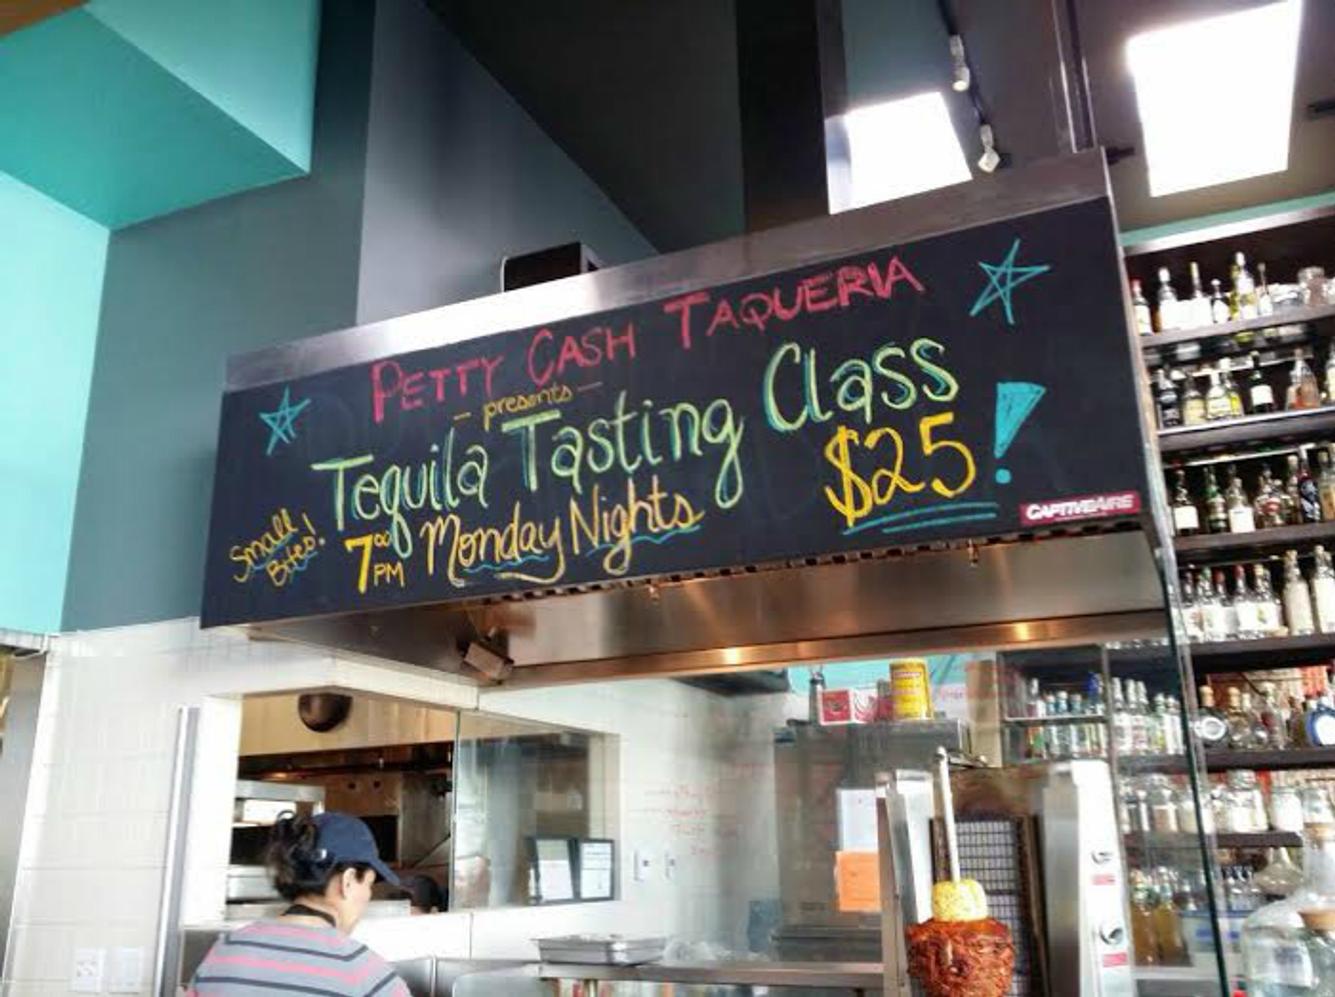 PETTY CASH TAQUERIA
- presents -
Tequila Tasting Class
Small Bites!
7:00 PM Monday Nights
$25!
CAPTIVEAIRE